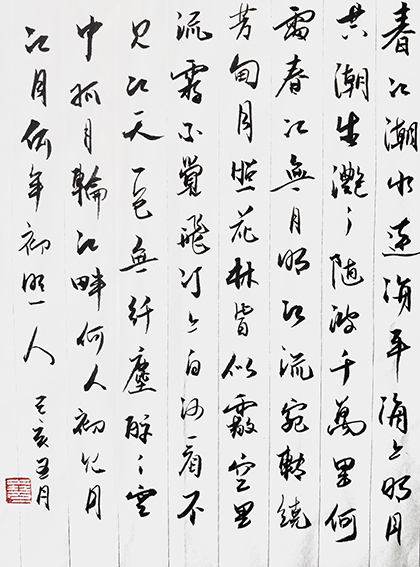 春江潮水連海平海上明月
共潮生灧〻随波千萬里何
處春江無月明江流宛轉繞
芳甸月照花林皆似霰空里
流霜不覺飛汀上白沙看不
見江天一色無纤塵皎〻空
中孤月輪江畔何人初見月
江月何年初照人 己亥 月